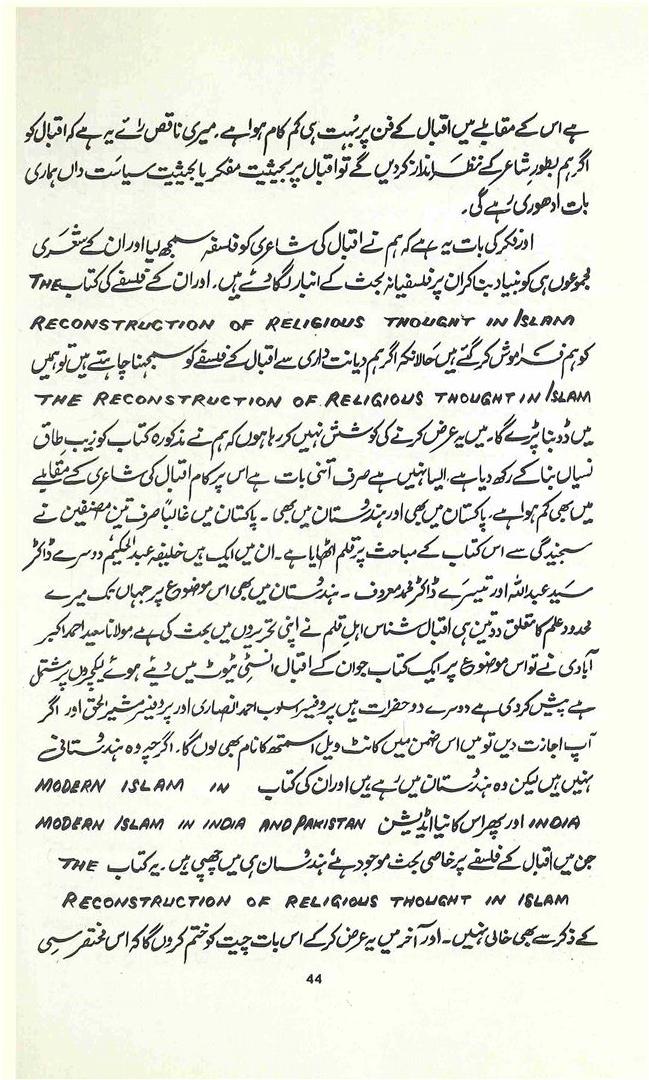 ہے اس کے مقابلے میں اقبال کے فن پر بہت ہی کم کام ہوا ہے۔ میری ناقص رائے یہ ہے کہ اقبال کو
اگر ہم بطور شاعر کے نظر انداز کر دیں گے تو اقبال پر بحیثیت مفکر یا بحیثیت سیاست داں ہماری
بات ادھوری رہے گی۔
اور فکر کی بات یہ ہے کہ ہم نے اقبال کی شاعری کو فلسفہ سمجھ لیا اور ان کے شعری
مجموعوں ہی کو بنیاد بنا کر ان پر فلسفیانہ بحث کے انبار لگا دئے ہیں۔ اور ان کے فلسفے کی کتاب THE
RECONSTRUCTION OF RELIGIOUS THOUGHT IN ISLAM
کو ہم فراموش کر گئے ہیں حالانکہ اگر ہم دیانت داری سے اقبال کے فلسفے کو سمجھنا چاہتے ہیں تو ہمیں
THE RECONSTRUCTION OF RELIGIOUS THOUGHT IN ISLAM
میں ڈوبنا پڑے گا۔ میں یہ عرض کرنے کی کوشش نہیں کر رہا ہوں کہ ہم نے مذکورہ کتاب کو زیب طاق
نسیاں بنا کے رکھ دیا ہے، ایسا نہیں ہے صرف اتنی بات ہے اس پر کام اقبال کی شاعری کے مقابلے
میں بھی کم ہوا ہے، پاکستان میں بھی اور ہندوستان میں بھی۔ پاکستان میں غالباً صرف تین مصنفین نے
سنجیدگی سے اس کتاب کے مباحث پر قلم اٹھایا ہے۔ ان میں ایک ہیں خلیفہ عبدالحکیم دوسرے ڈاکٹر
سید عبداللہ اور تیسرے ڈاکٹر محمد معروف۔ ہندوستان میں بھی اس موضوع پر جہاں تک میرے
محدود علم کا تعلق دو تین ہی اقبال شناس اہل قلم نے اپنی تحریروں میں بحث کی ہے مولانا سعید احمد اکبر
آبادی نے تو اس موضوع پر ایک کتاب جو ان کے اقبال انسٹی ٹیوٹ میں دیئے ہوئے لیکچروں پر مشتمل
ہے پیش کر دی ہے دوسرے دو حضرات ہیں پروفیسر اسلوب احمد انصاری اور پروفیسر مشیر الحق اور اگر
آپ اجازت دیں تو میں اس ضمن میں کانٹ ویل اسمتھ کا نام بھی لوں گا۔ اگرچہ وہ ہندوستانی
نہیں ہیں لیکن وہ ہندوستان میں رہے ہیں اور ان کی کتاب MODERN ISLAM IN
INDIA اور پھر اس کا نیا ایڈیشن MODERN ISLAM IN INDIA AND PAKISTAN
جن میں اقبال کے فلسفے پر خاصی بحث موجود ہے ہندوستان ہی میں چھپی ہیں۔ یہ کتاب THE
RECONSTRUCTION OF RELIGIOUS THOUGHT IN ISLAM
کے ذکر سے بھی خالی نہیں۔ اور آخر میں یہ عرض کر کے اس بات چیت کو ختم کروں گا کہ اس مختصر سی
44